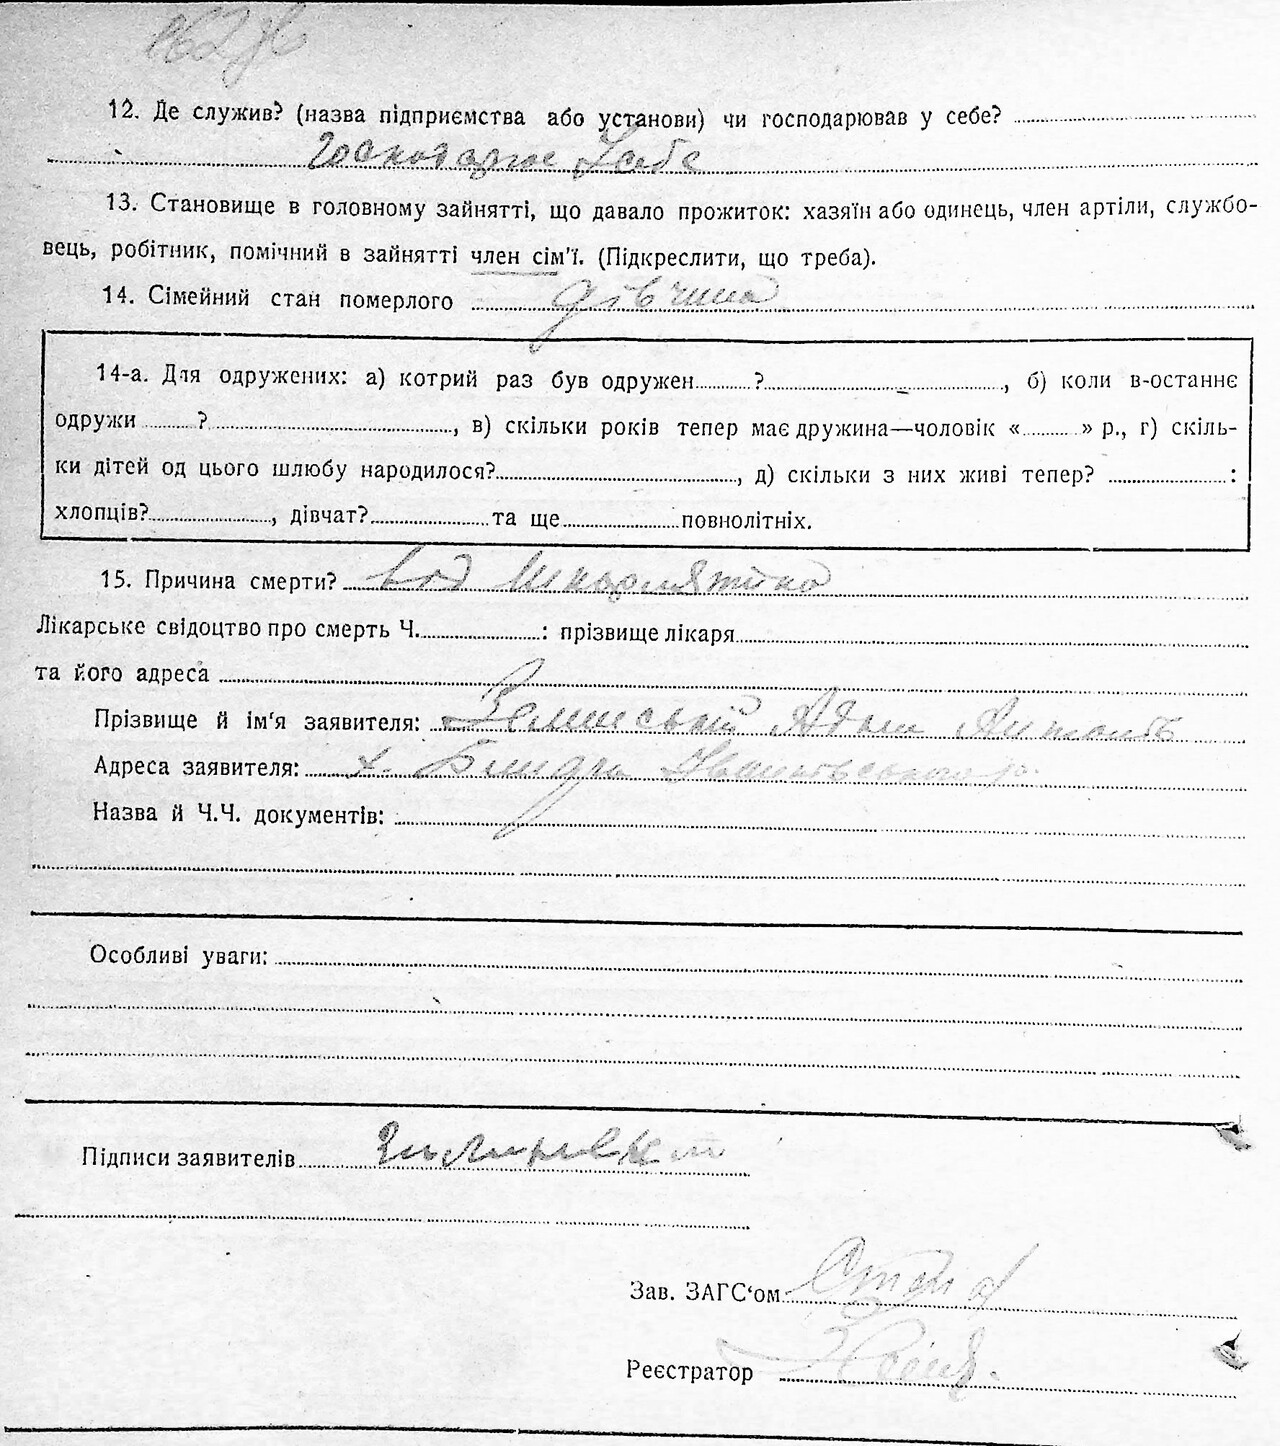 12. Де служив? (назва підприємства або установи) чи господарював у себе?
Господарює у себе
13. Становище в головному зайнятті, що давало прожиток: хазяїн або одинець, член артіли, службо-
вець, робітник, помічний в зайнятті член сім'ї. (Підкреслити, що треба).
14. Сімейний стан померлого дівчина
14-а. Для одружених: а) котрий раз був одружен ?, б) коли в-останнє
одружи ?, в) скільки років тепер має дружина—чоловік « » р., г) скіль-
ки дітей од цього шлюбу народилося?, д) скільки з них живі тепер? :
хлопців?, дівчат? та ще повнолітніх.
15. Причина смерти? від шкарлятіна
Лікарське свідоцтво про смерть Ч. : прізвище лікаря
та його адреса
Прізвище й ім'я заявителя: Адам
Адреса заявителя: х.
Назва й Ч.Ч. документів:
Особливі уваги:
Підписи заявителів
Зав. ЗАГС'ом
Реєстратор